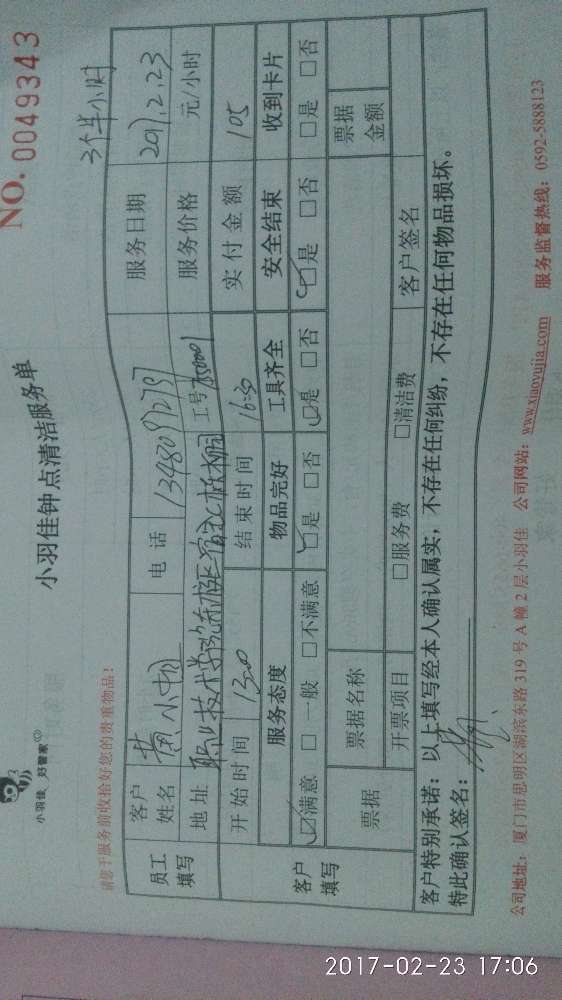 小羽佳 好管家
小羽佳钟点清洁服务单
NO. 0049343
请您于服务前收拾好您的贵重物品!
3个半小时
员工填写
客户姓名 黄小姐 电话 服务日期 2017.2.23
地址 职业技术学院 工号 服务价格 元/小时
客户填写
开始时间 13:00 结束时间 16:30 实付金额 105
服务态度 物品完好 工具齐全 安全结束 收到卡片
☑满意 □一般 □不满意 ☑是 □否 ☑是 □否 ☑是 □否 □是 □否
票据 票据名称 票据金额
开票项目 □服务费 □清洁费 客户签名
客户特别承诺:以上填写经本人确认属实,不存在任何纠纷,不存在任何物品损坏。
特此确认签名:
公司地址:厦门市思明区湖滨东路 319 号 A 幢 2 层小羽佳 公司网站:www.xiaoyujia.com 服务监督热线:0592-5888123
2017-02-23 17:06